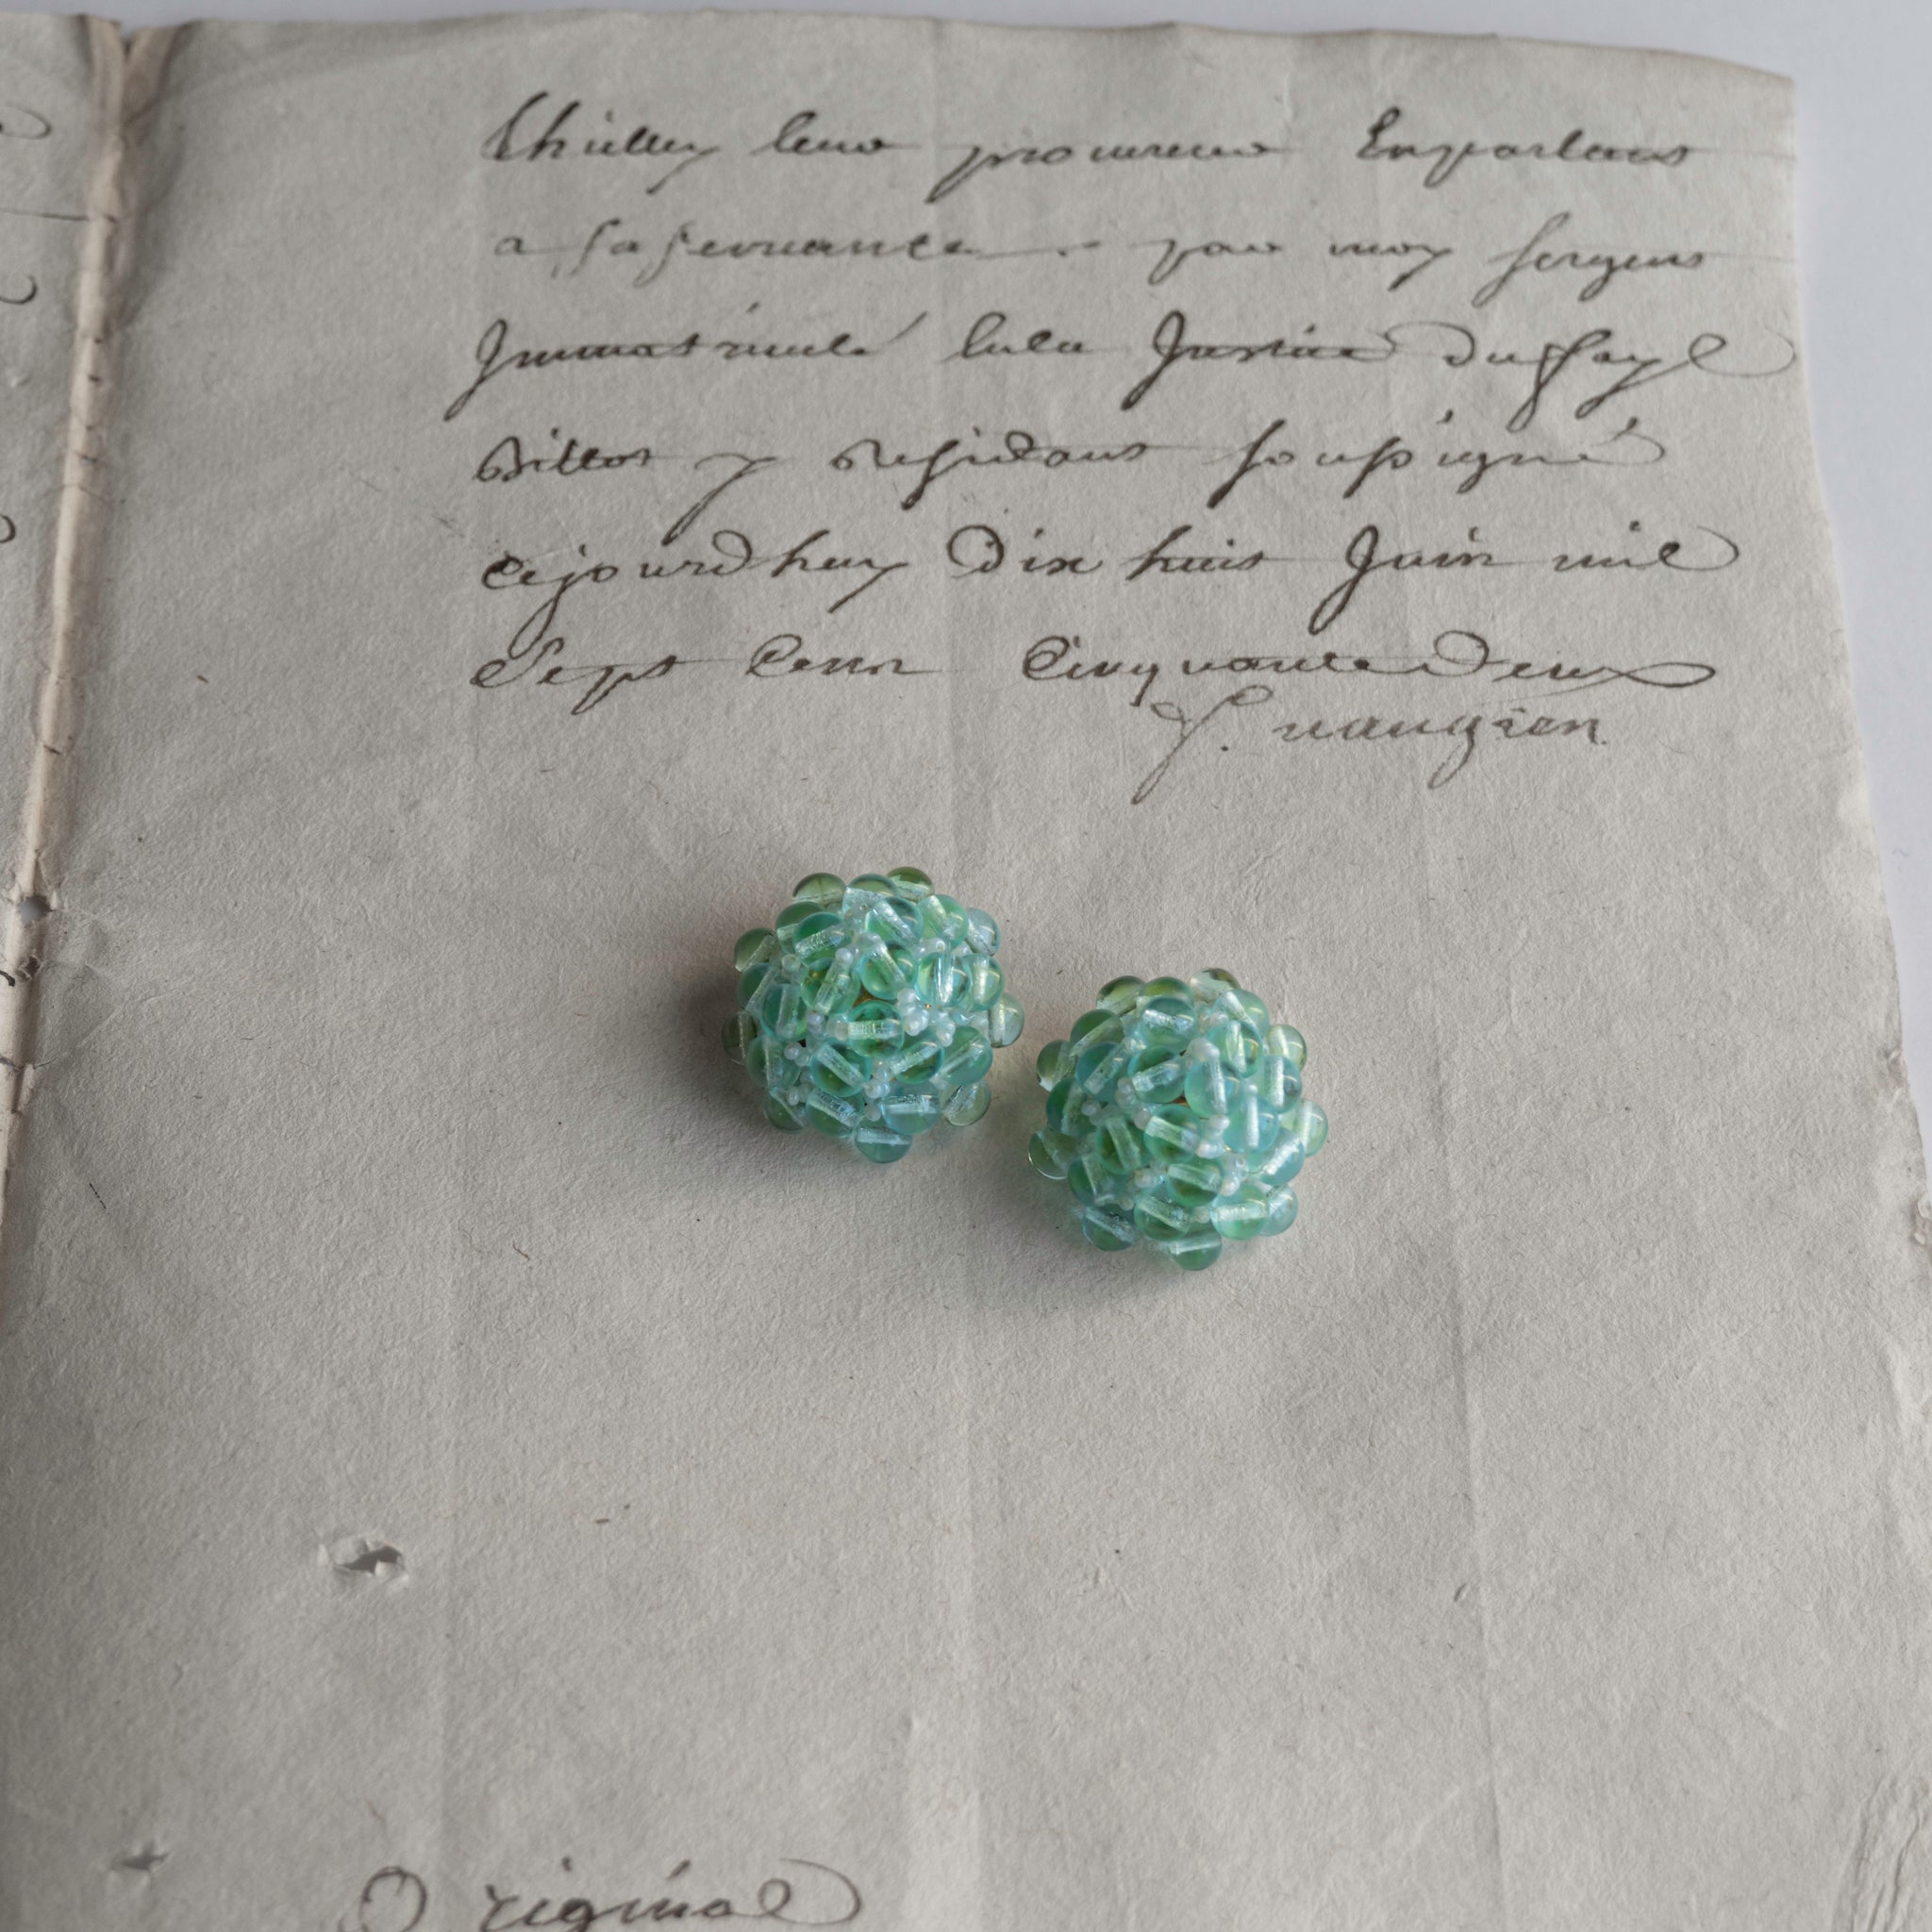 Thielley leur procureur En parlant
a sa servante par moy sergent
Immatriculé en la Justice du fayl
Billot y Residant soussigné
Cejourdhuy Dix huit Juin mil
Sept Cent Cinquante Deux
vaugien
Original